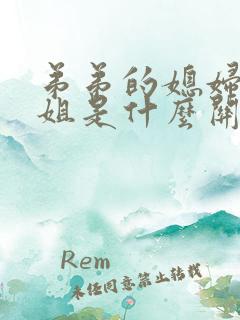 弟弟的媳婦
姐是什麼關
Rem
未任同意禁止转载